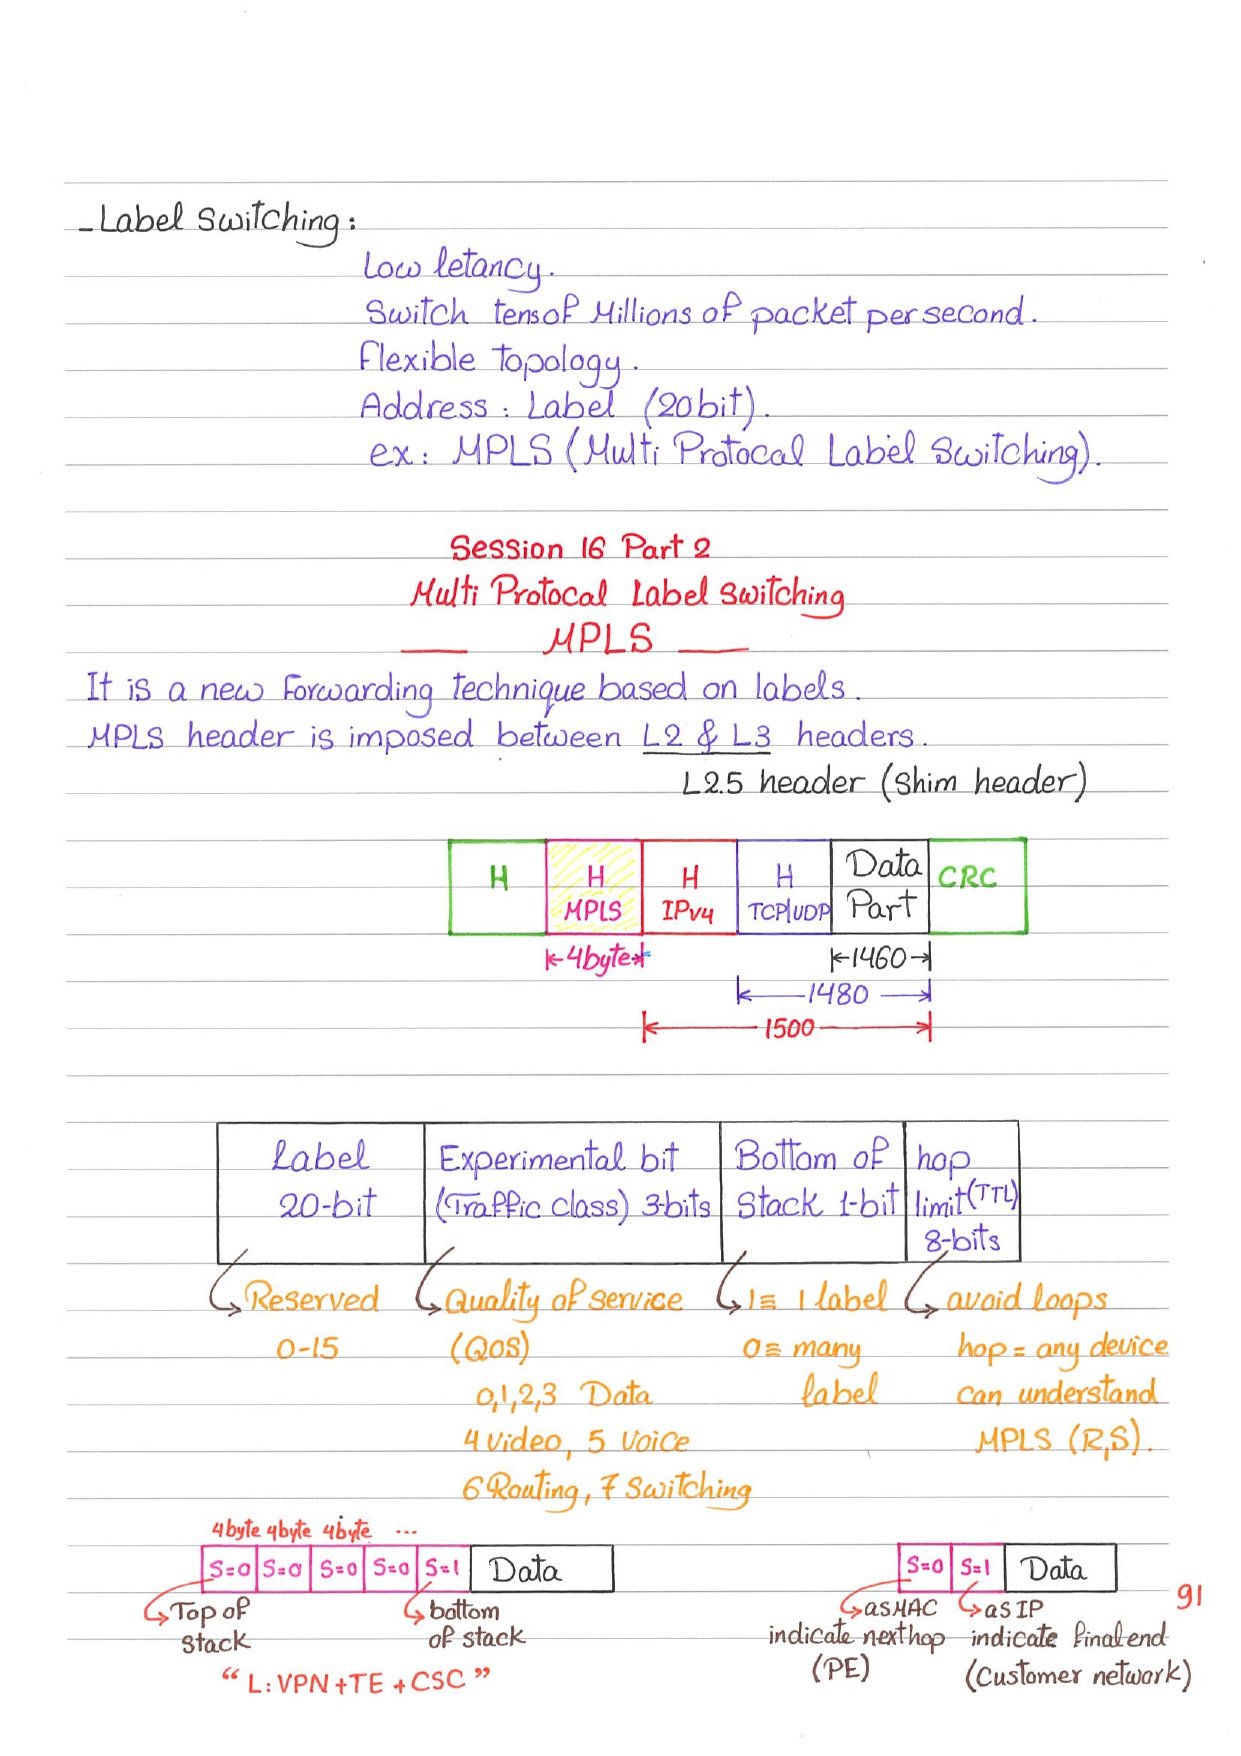 - Label Switching:
Low letancy.
Switch tens of Millions of packet per second.
Flexible topology.
Address: Label (20bit).
ex: MPLS (Multi Protocal Label Switching).
Session 16 Part 2
Multi Protocal Label Switching
MPLS
It is a new Forwarding technique based on labels.
MPLS header is imposed between L2 & L3 headers.
L2.5 header (Shim header)
H H H H Data CRC
MPLS IPv4 TCP|UDP Part
4byte 1460
1480
1500
Label Experimental bit Bottom of hop
20-bit (Traffic class) 3-bits Stack 1-bit limit (TTL)
8-bits
Reserved Quality of service 1≡ 1 label avoid loops
0-15 (QOS) 0≡ many hop = any device
0,1,2,3 Data label can understand
4 Video, 5 Voice MPLS (R,S).
6 Routing, 7 Switching
4byte 4byte 4byte ...
S=0 S=0 S=0 S=0 S=1 Data S=0 S=1 Data
91
Top of bottom as MAC as IP
Stack of stack indicate next hop indicate final end
(PE) (Customer network)
" L: VPN + TE + CSC "